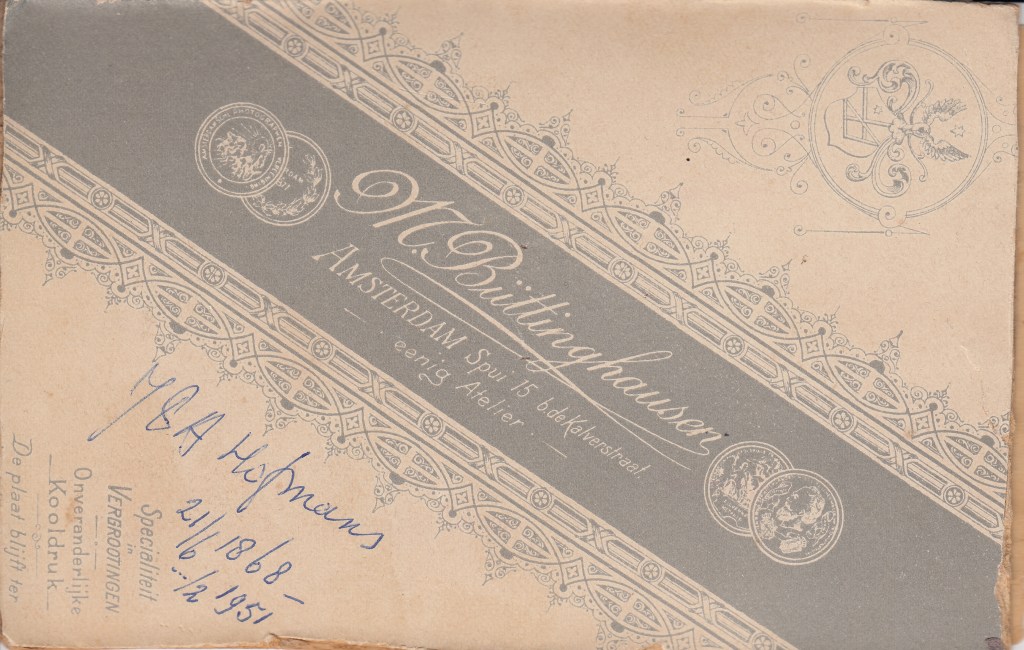 M. Büttinghausen
AMSTERDAM Spui 15 b.de Kalverstraat.
eenig Atelier.
Hofmans
21/6 1868 –
.../2 1951
Specialiteit
in
VERGROOTINGEN.
Onveranderlijke
Kooldruk
De plaat blijft ter